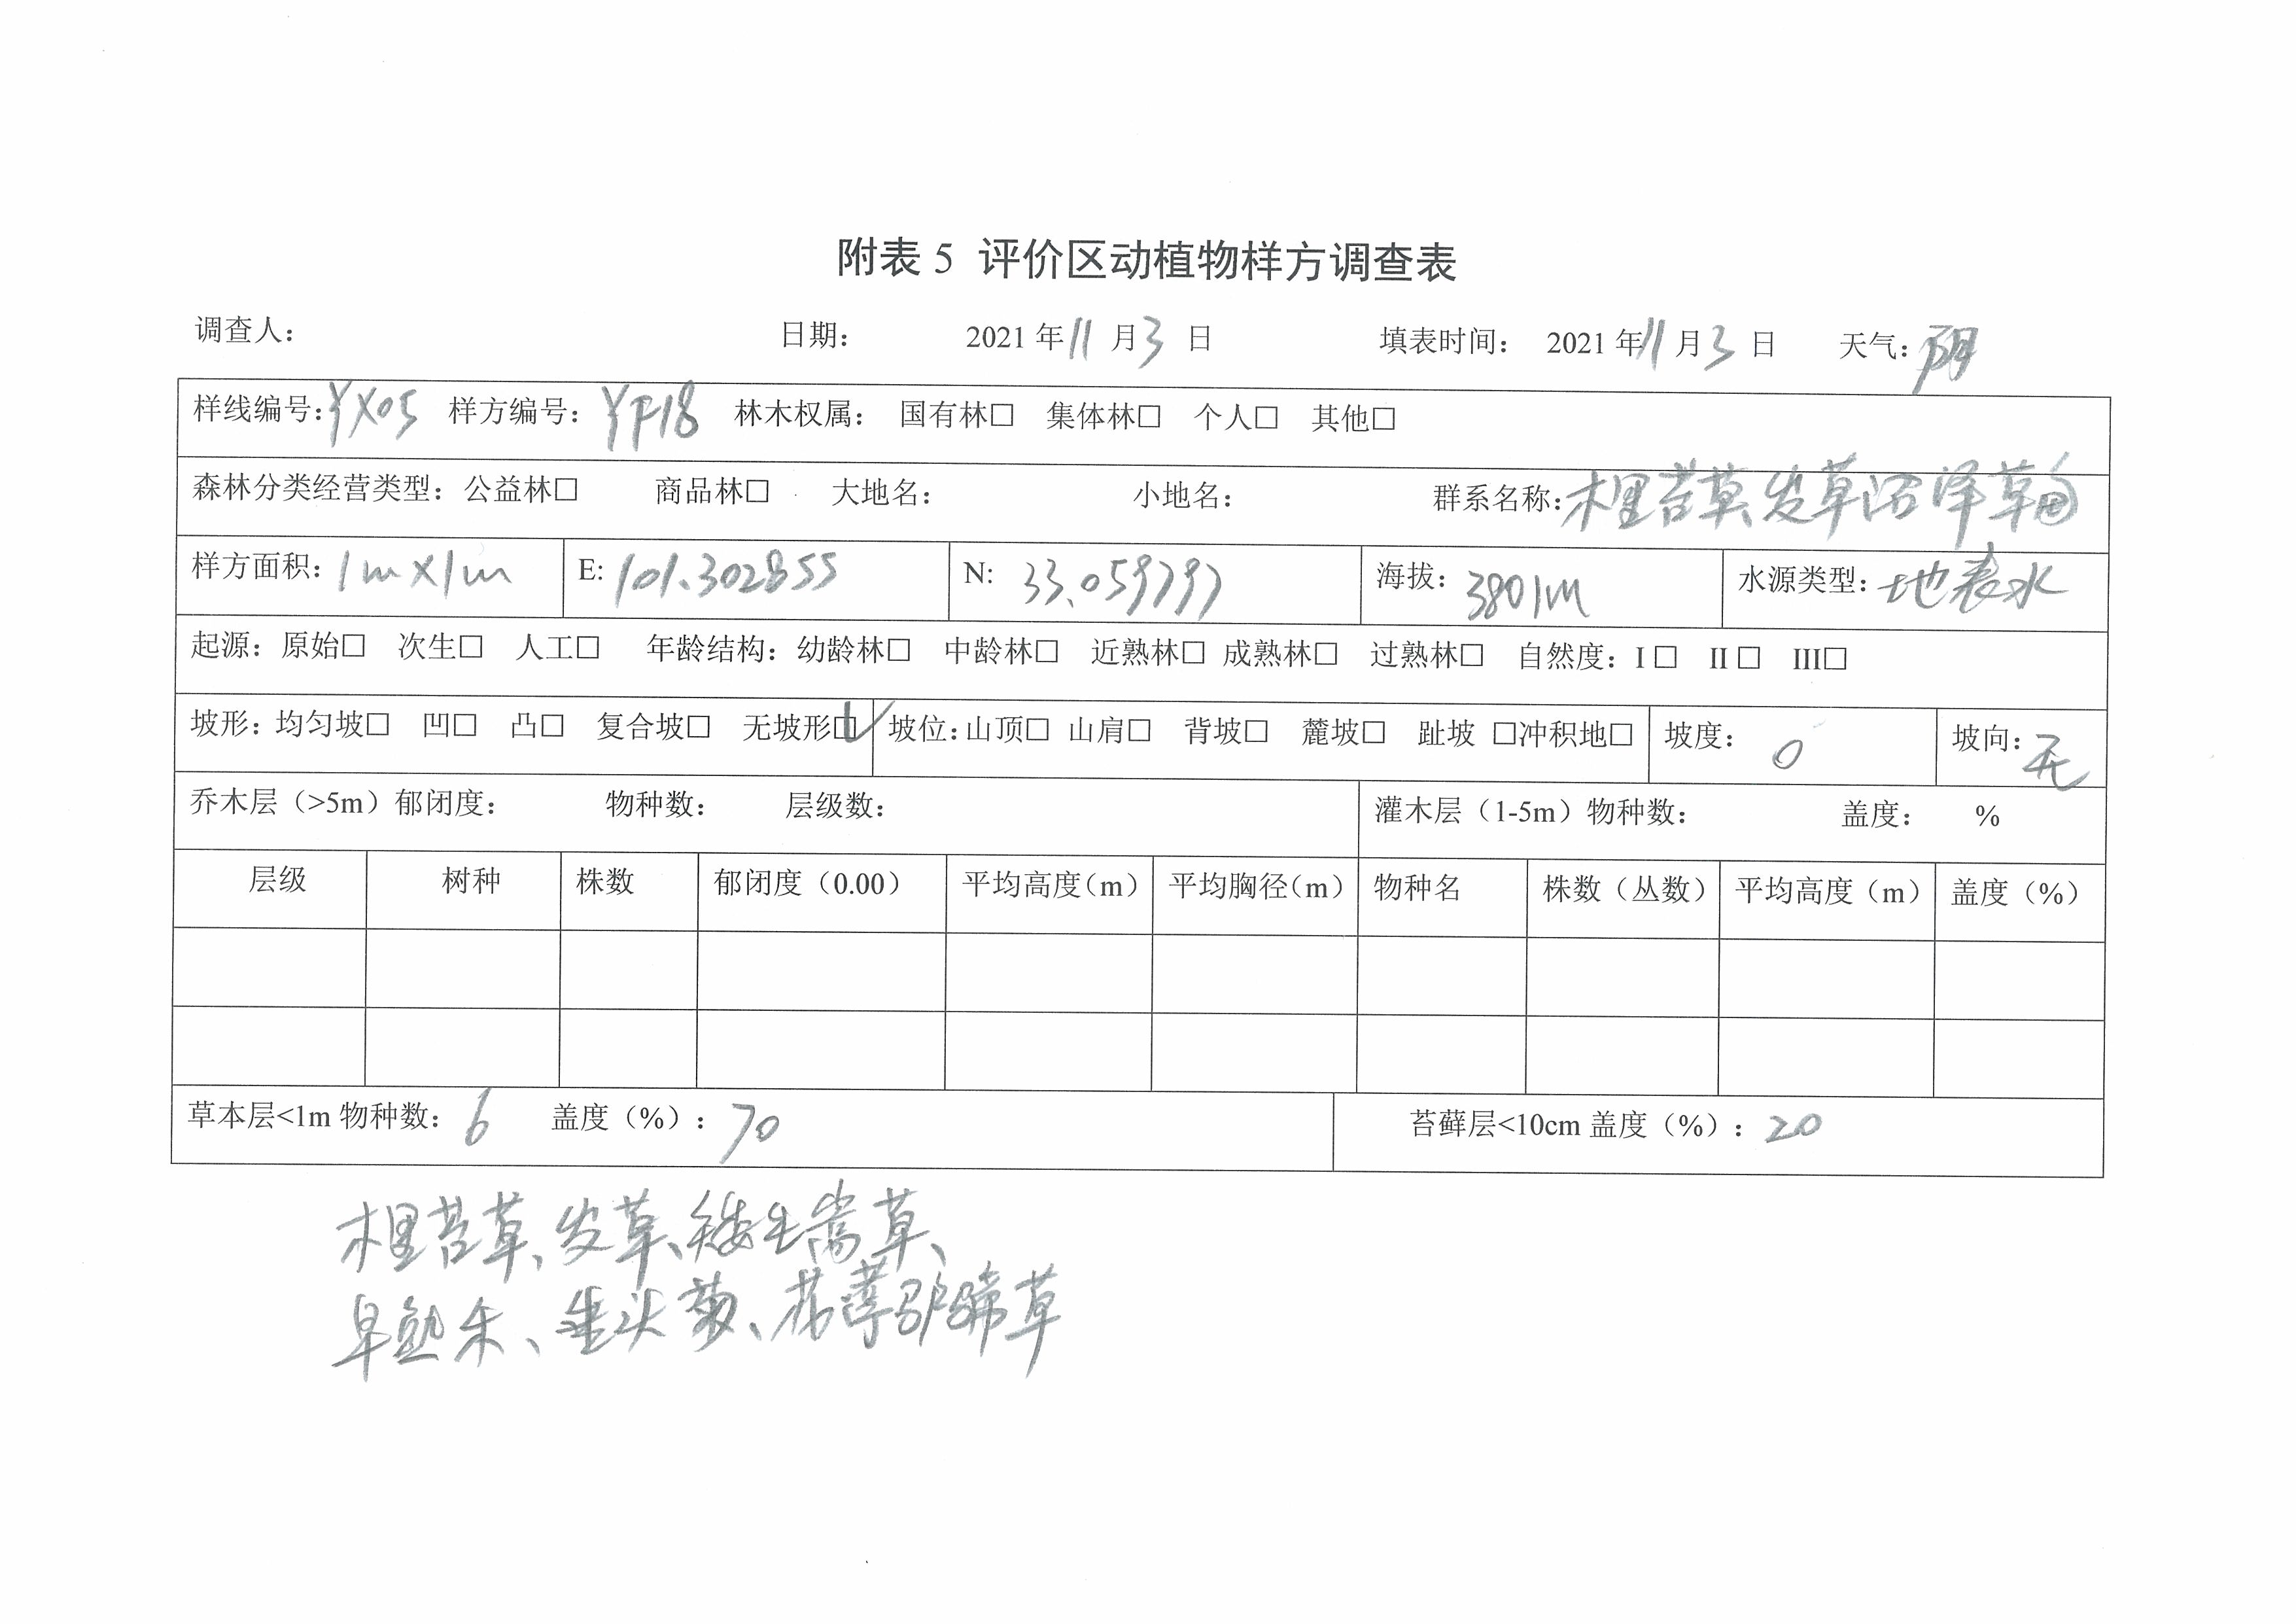 附表 5 评价区动植物样方调查表
调查人： 日期： 2021 年 11 月 3 日 填表时间： 2021 年 11 月 3 日 天气：阴
样线编号：YX05 样方编号：YF18 林木权属： 国有林□ 集体林□ 个人□ 其他□
森林分类经营类型：公益林□ 商品林□ 大地名： 小地名： 群系名称：木里苔草、发草沼泽草甸
样方面积：1m×1m E: 101.302855 N: 海拔：3801m 水源类型：地表水
起源：原始□ 次生□ 人工□ 年龄结构：幼龄林□ 中龄林□ 近熟林□ 成熟林□ 过熟林□ 自然度：I □ II □ III□
坡形：均匀坡□ 凹□ 凸□ 复合坡□ 无坡形☑ 坡位：山顶□ 山肩□ 背坡□ 麓坡□ 趾坡 □冲积地□ 坡度： 0 坡向：无
乔木层（>5m）郁闭度： 物种数： 层级数： 灌木层（1-5m）物种数： 盖度： %
层级 树种 株数 郁闭度（0.00） 平均高度(m) 平均胸径(m) 物种名 株数（丛数） 平均高度（m） 盖度（%）
草本层<1m 物种数：6 盖度（%）：70 苔藓层<10cm 盖度（%）：20
木里苔草、发草、矮生嵩草、
早熟禾、垂头菊、花葶驴蹄草